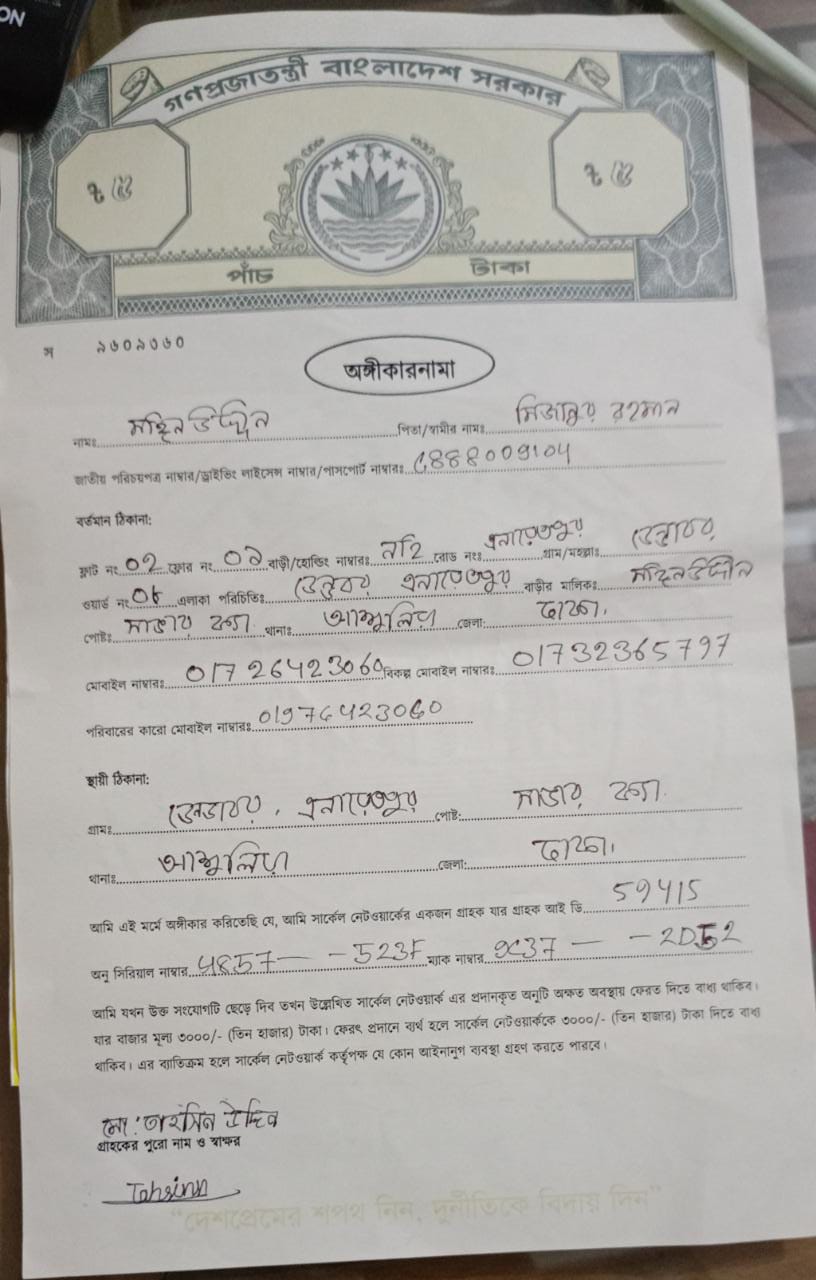 ON
গণপ্রজাতন্ত্রী বাংলাদেশ সরকার
৳ ৫ ৳ ৫
পাঁচ টাকা
স ৯৬০৯৩৬০
অঙ্গীকারনামা
নামঃ মহিন উদ্দিন পিতা/স্বামীর নামঃ মিজানুর রহমান
জাতীয় পরিচয়পত্র নাম্বার/ড্রাইভিং লাইসেন্স নাম্বার/পাসপোর্ট নাম্বারঃ
বর্তমান ঠিকানা:
ফ্লাট নং 02 ফ্লোর নং ০৯ বাড়ী/হোল্ডিং নাম্বারঃ নাই রোড নংঃ এনায়েতপুর গ্রাম/মহল্লাঃ
ওয়ার্ড নং 06 এলাকা পরিচিতিঃ এনায়েতপুর বাড়ীর মালিকঃ মহিন উদ্দিন
পোষ্টঃ সাভার থানাঃ আশুলিয়া জেলা: ঢাকা।
মোবাইল নাম্বারঃ 01726423060 বিকল্প মোবাইল নাম্বারঃ 01732365797
পরিবারের কারো মোবাইল নাম্বারঃ 01976423060
স্থায়ী ঠিকানা:
গ্রামঃ এনায়েতপুর পোষ্ট: সাভার
থানাঃ আশুলিয়া জেলা: ঢাকা।
আমি এই মর্মে অঙ্গীকার করিতেছি যে, আমি সার্কেল নেটওয়ার্কের একজন গ্রাহক যার গ্রাহক আই ডি 59415
অনু সিরিয়াল নাম্বার ম্যাক নাম্বার
আমি যখন উক্ত সংযোগটি ছেড়ে দিব তখন উল্লেখিত সার্কেল নেটওয়ার্ক এর প্রদানকৃত অনুটি অক্ষত অবস্থায় ফেরত দিতে বাধ্য থাকিব।
যার বাজার মূল্য ৩০০০/- (তিন হাজার) টাকা। ফেরৎ প্রদানে ব্যর্থ হলে সার্কেল নেটওয়ার্ককে ৩০০০/- (তিন হাজার) টাকা দিতে বাধ্য
থাকিব। এর ব্যতিক্রম হলে সার্কেল নেটওয়ার্ক কর্তৃপক্ষ যে কোন আইনানুগ ব্যবস্থা গ্রহণ করতে পারবে।
মো: তাহসিন উদ্দিন
গ্রাহকের পুরো নাম ও স্বাক্ষর
Tahsinn
"দেশপ্রেমের শপথ নিন, দুর্নীতিকে বিদায় দিন"